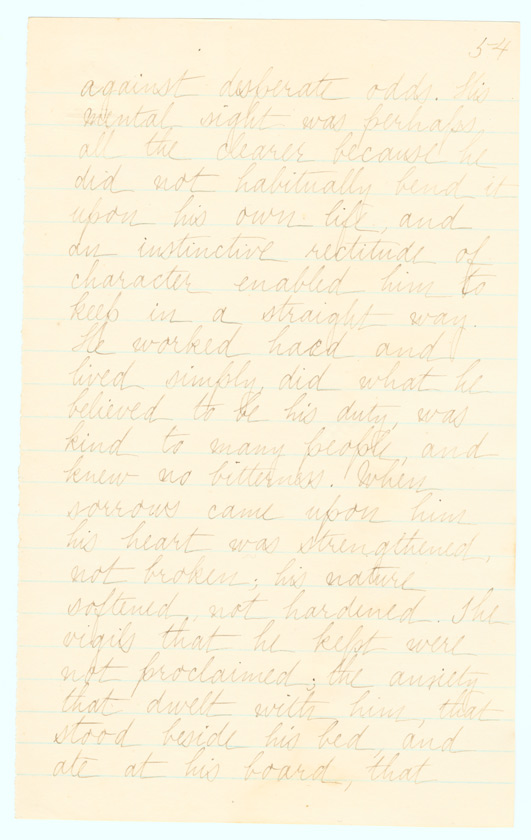 54
against desperate odds. His
mental sight was perhaps
all the clearer because he
did not habitually bend it
upon his own life, and
an instinctive rectitude of
character enabled him to
keep in a straight way.
He worked hard and
lived simply, did what he
believed to be his duty, was
kind to many people, and
knew no bitterness. When
sorrows came upon him
his heart was strengthened,
not broken; his nature
softened, not hardened. The
vigils that he kept were
not proclaimed; the anxiety
that dwelt with him, that
stood beside his bed, and
ate at his board, that